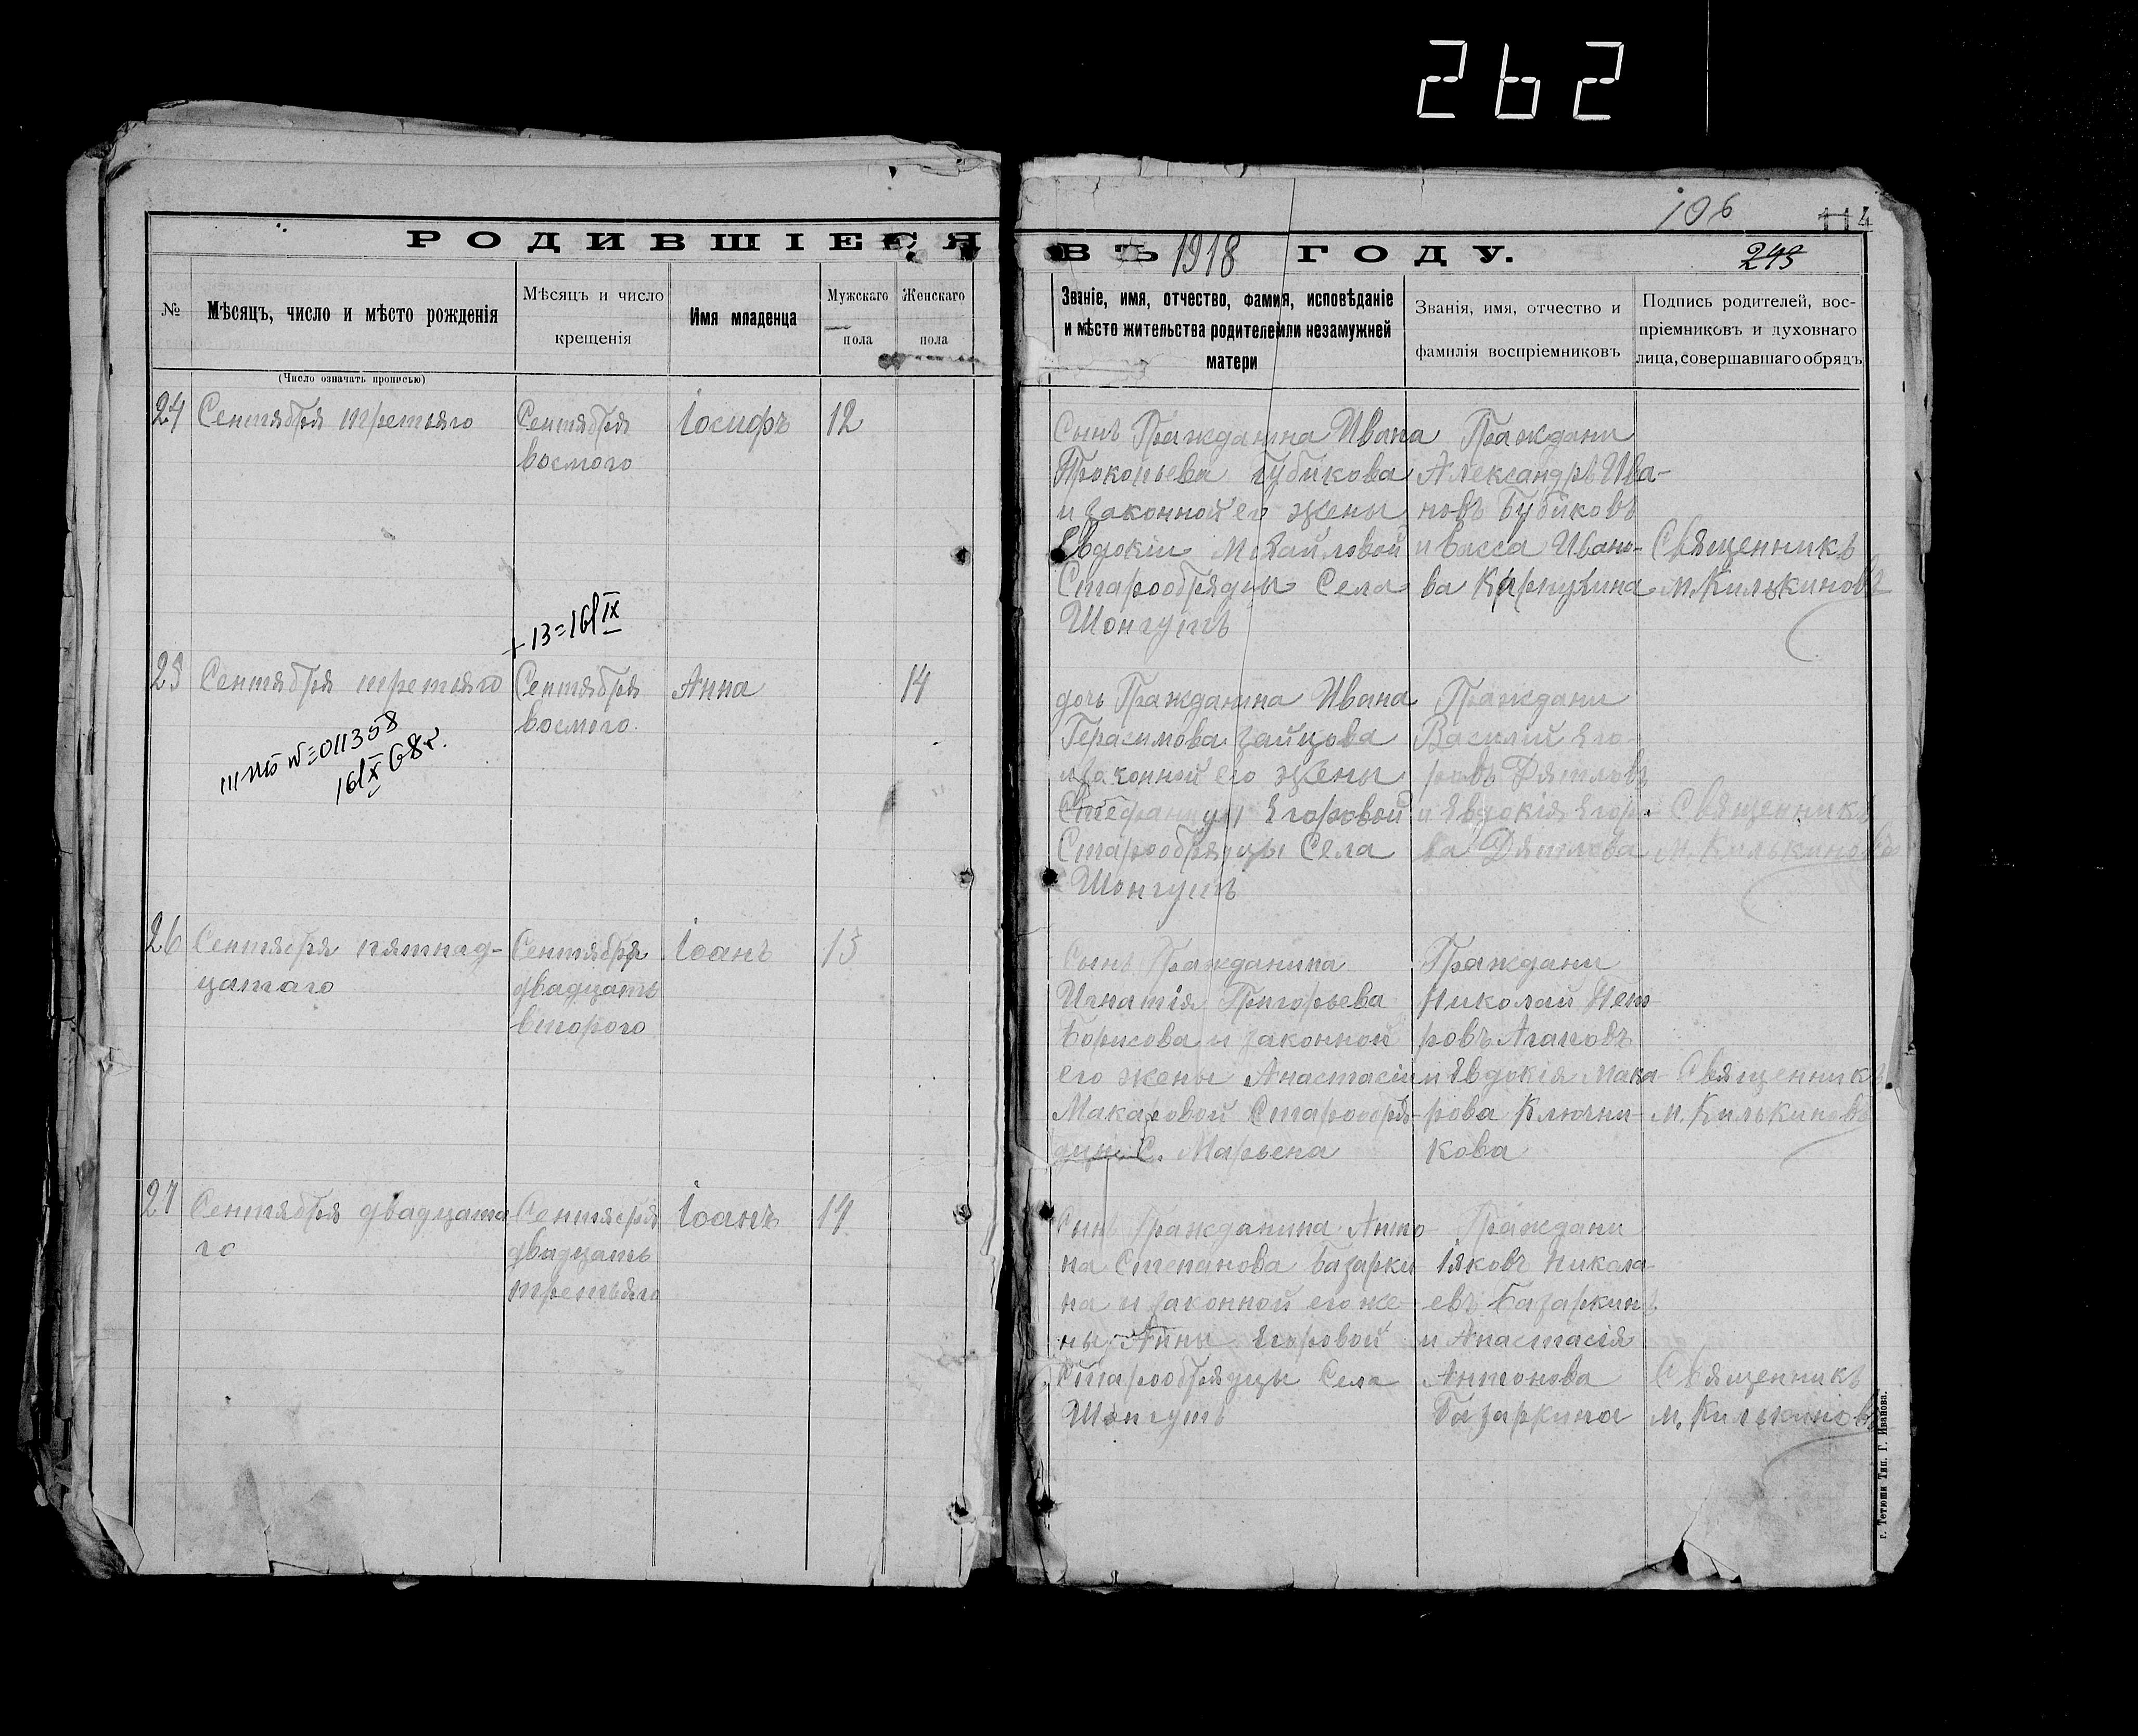 262
106
114
243
РОДИВШІЕСЯ
ВЪ 1918 ГОДУ.
№
Мѣсяцъ, число и мѣсто рожденія
(Число означать прописью)
Мѣсяцъ и число
крещенія
Имя младенца
Мужскаго
пола
Женскаго
пола
Званіе, имя, отчество, фамия, исповѣданіе
и мѣсто жительства родителейили незамужней
матери
Званія, имя, отчество и
фамилія воспріемниковъ
Подпись родителей, вос-
пріемниковъ и духовнаго
лица, совершавшаго обрядъ
24
Сентября третьяго
Сентября
восмого
Іосифъ
12
Сынъ Гражданина Ивана
Прокопьева Губикова
и законной его жены
Евдокіи Михайловой
Старообрядцы Села
Шонгутъ
Граждани
Александръ Ива-
новъ Бубиковъ
и Васса Ивано-
ва Карпухина
Священникъ
М. Килькиновъ
+ 13=16/IX
25
Сентября третьяго
III №=011358
16/X 68г.
Сентября
восмого
Анна
14
дочь Гражданина Ивана
Герасимова Зайцова
и законной его жены
Стефаниды Егоровой
Старообрядцы Села
Шонгутъ
Граждани
Василій Его-
ровъ Дятловъ
и Евдокія Егоро-
ва Дятлова
Священникъ
М. Килькиновъ
26
Сентября пятнад-
цатаго
Сентября
двадцать
второго
Іоанъ
13
Сынъ Гражданина
Игнатія Григорьева
Борисова и законной
его жены Анастасіи
Макаровой Старообря-
дцы С. Марьена
Граждани
Николай Пет
ровъ Агаповъ
и Евдокія Мака
рова Ключни-
кова
Священникъ
М. Килькиновъ
27
Сентября двадцата
го
Сентября
двадцать
третьяго
Іоанъ
14
Сынъ Гражданина Анто
на Степанова Базарки
на и законной его же-
ны Анны Егоровой
Старообрядцы Села
Шонгутъ
Граждани
Іяковъ Никола
евъ Базаркинъ
и Анастасія
Антонова
Базаркина
Священникъ
М. Килькиновъ
г. Тетюши Тип. Г. Иванова.